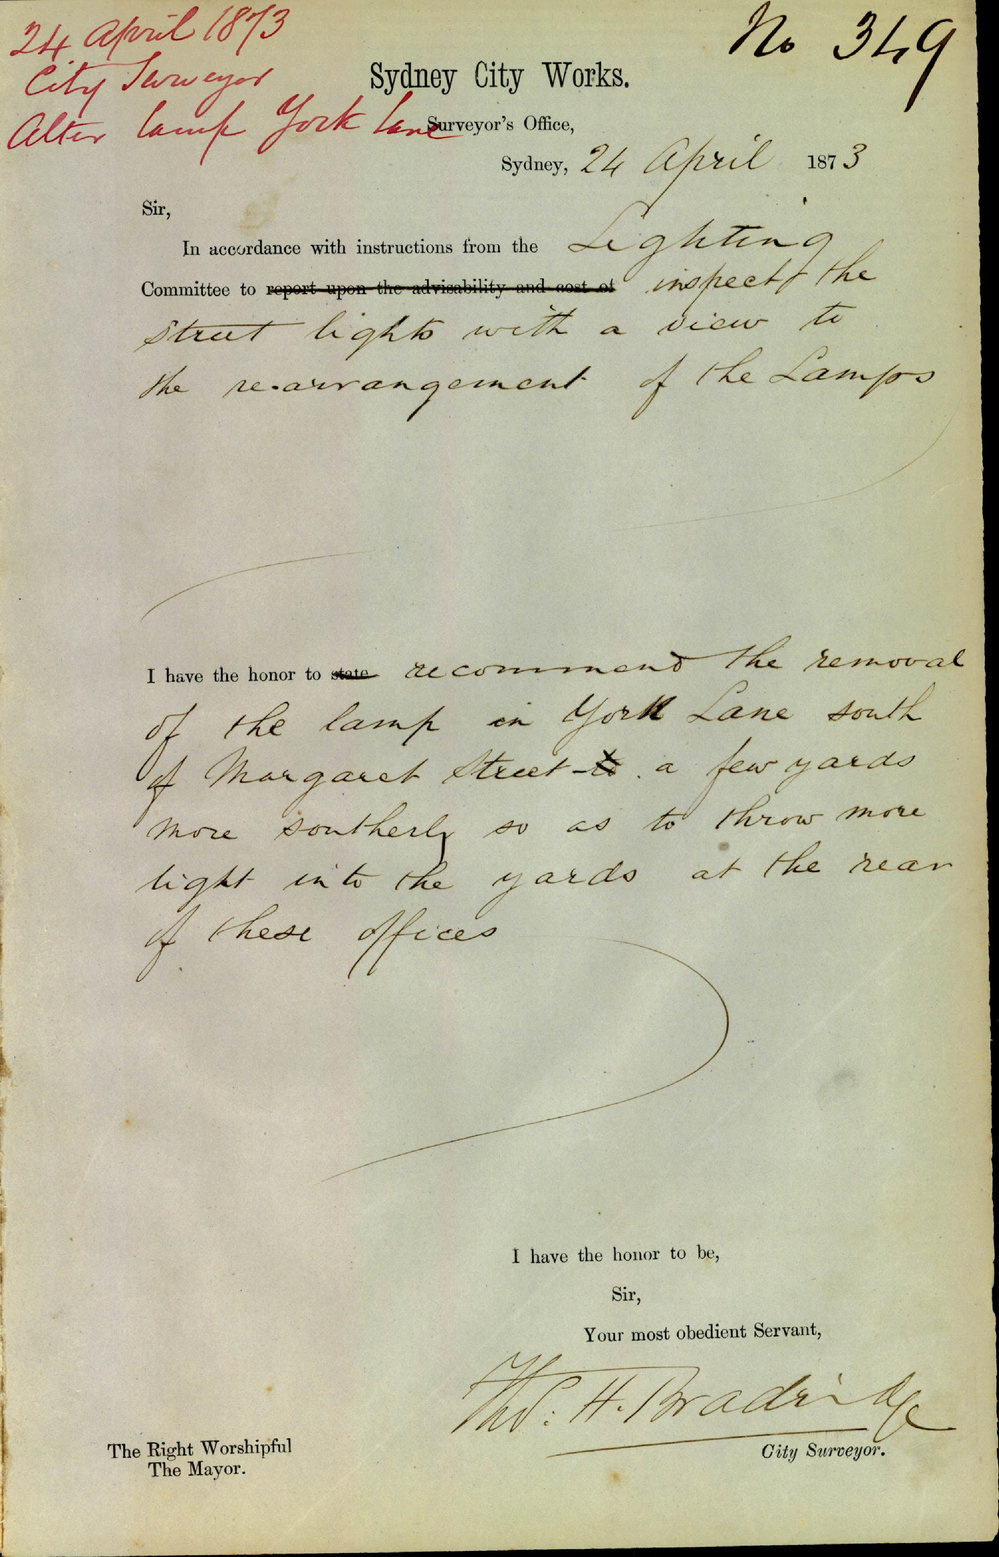 24 April 1873
City Surveyor
Alter lamp York Lane
No 349
Sydney City Works.
Surveyor's Office,
Sydney, 24 April 1873
Sir,
In accordance with instructions from the Lighting
Committee to report upon the advisability and cost of inspect the
Street lights with a view to
the re-arrangement of the Lamps
I have the honor to state recommend the removal
of the lamp in York Lane south
of Margaret Street to a few yards
more southerly so as to throw more
light into the yards at the rear
of these offices
I have the honor to be,
Sir,
Your most obedient Servant,
Thos. H. Bradridge
City Surveyor.
The Right Worshipful
The Mayor.